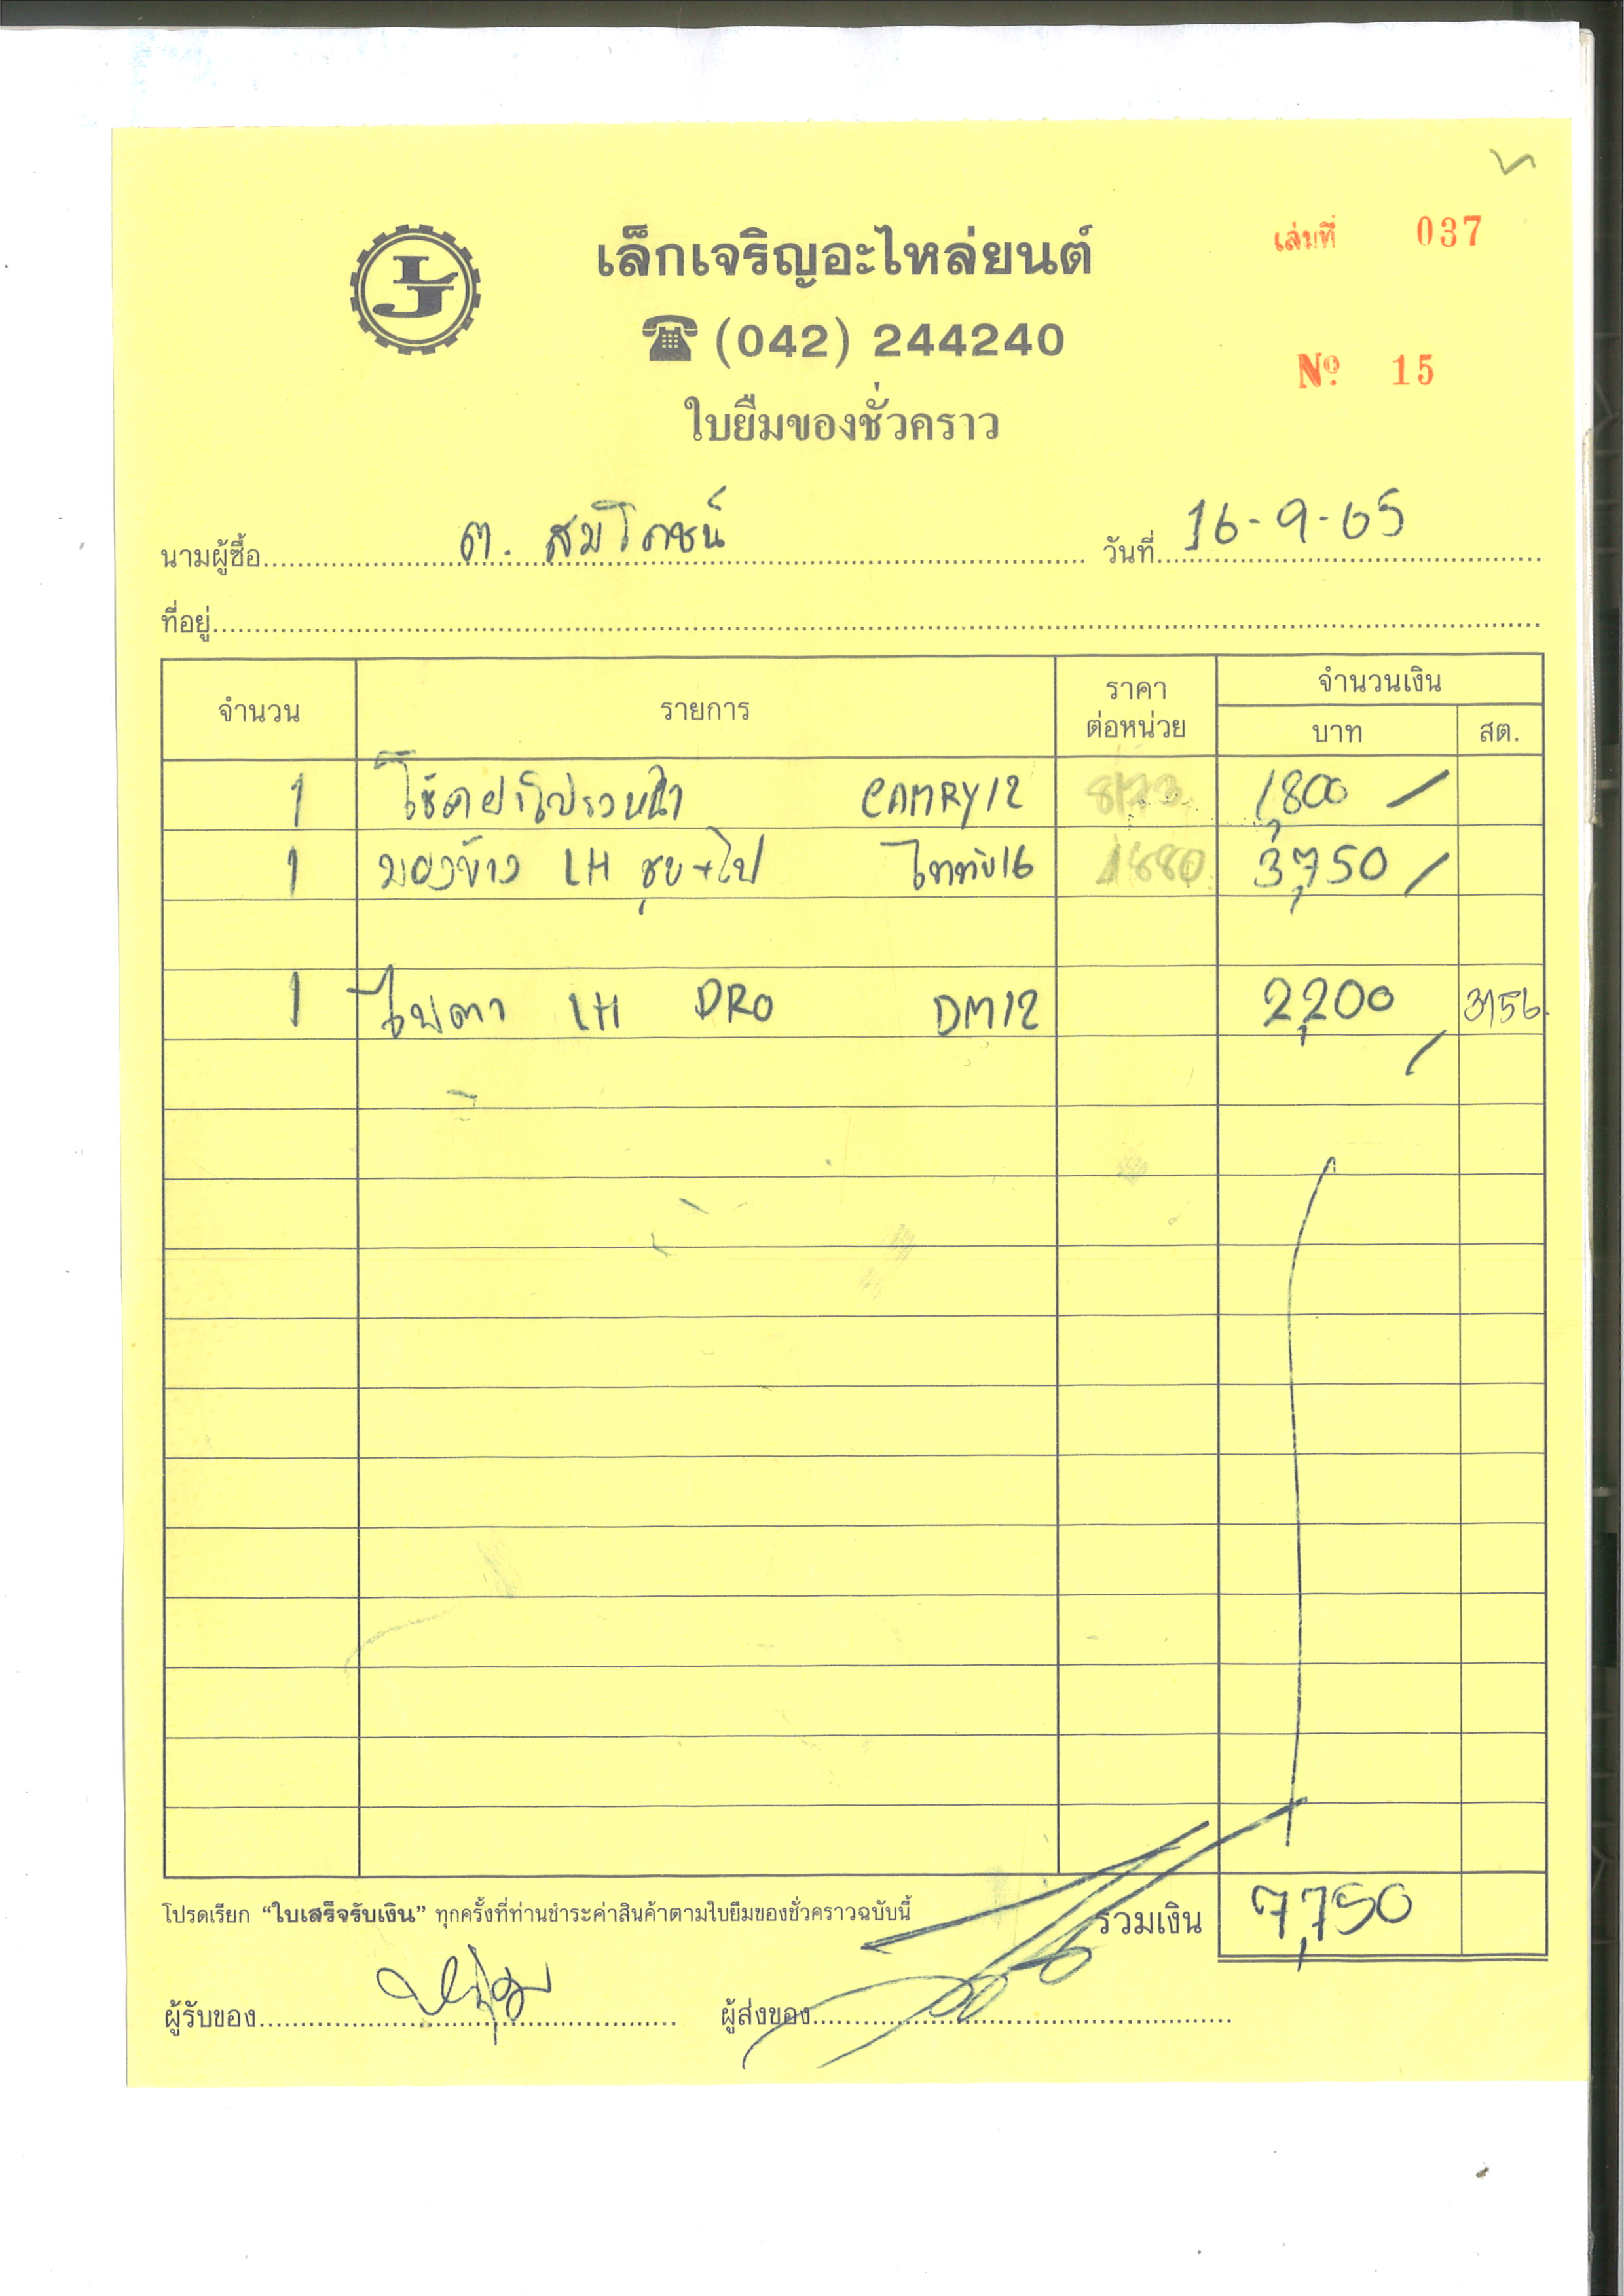 เล่มที่ 037
LJ
เล็กเจริญอะไหล่ยนต์
☎ (042) 244240
Nº 15
ใบยืมของชั่วคราว
นามผู้ซื้อ ต. สมโภชน์ วันที่ 16-9-65
ที่อยู่
จำนวน รายการ ราคาต่อหน่วย จำนวนเงิน
บาท สต.
1 CAMRY12 1,800
1 มองข้าง LH ชุบ+ไฟ 16 1880 3,750
1 ไฟตา LH PRO DM12 2,200 3156
โปรดเรียก “ใบเสร็จรับเงิน” ทุกครั้งที่ท่านชำระค่าสินค้าตามใบยืมของชั่วคราวฉบับนี้ รวมเงิน 7,750
ผู้รับของ ผู้ส่งของ